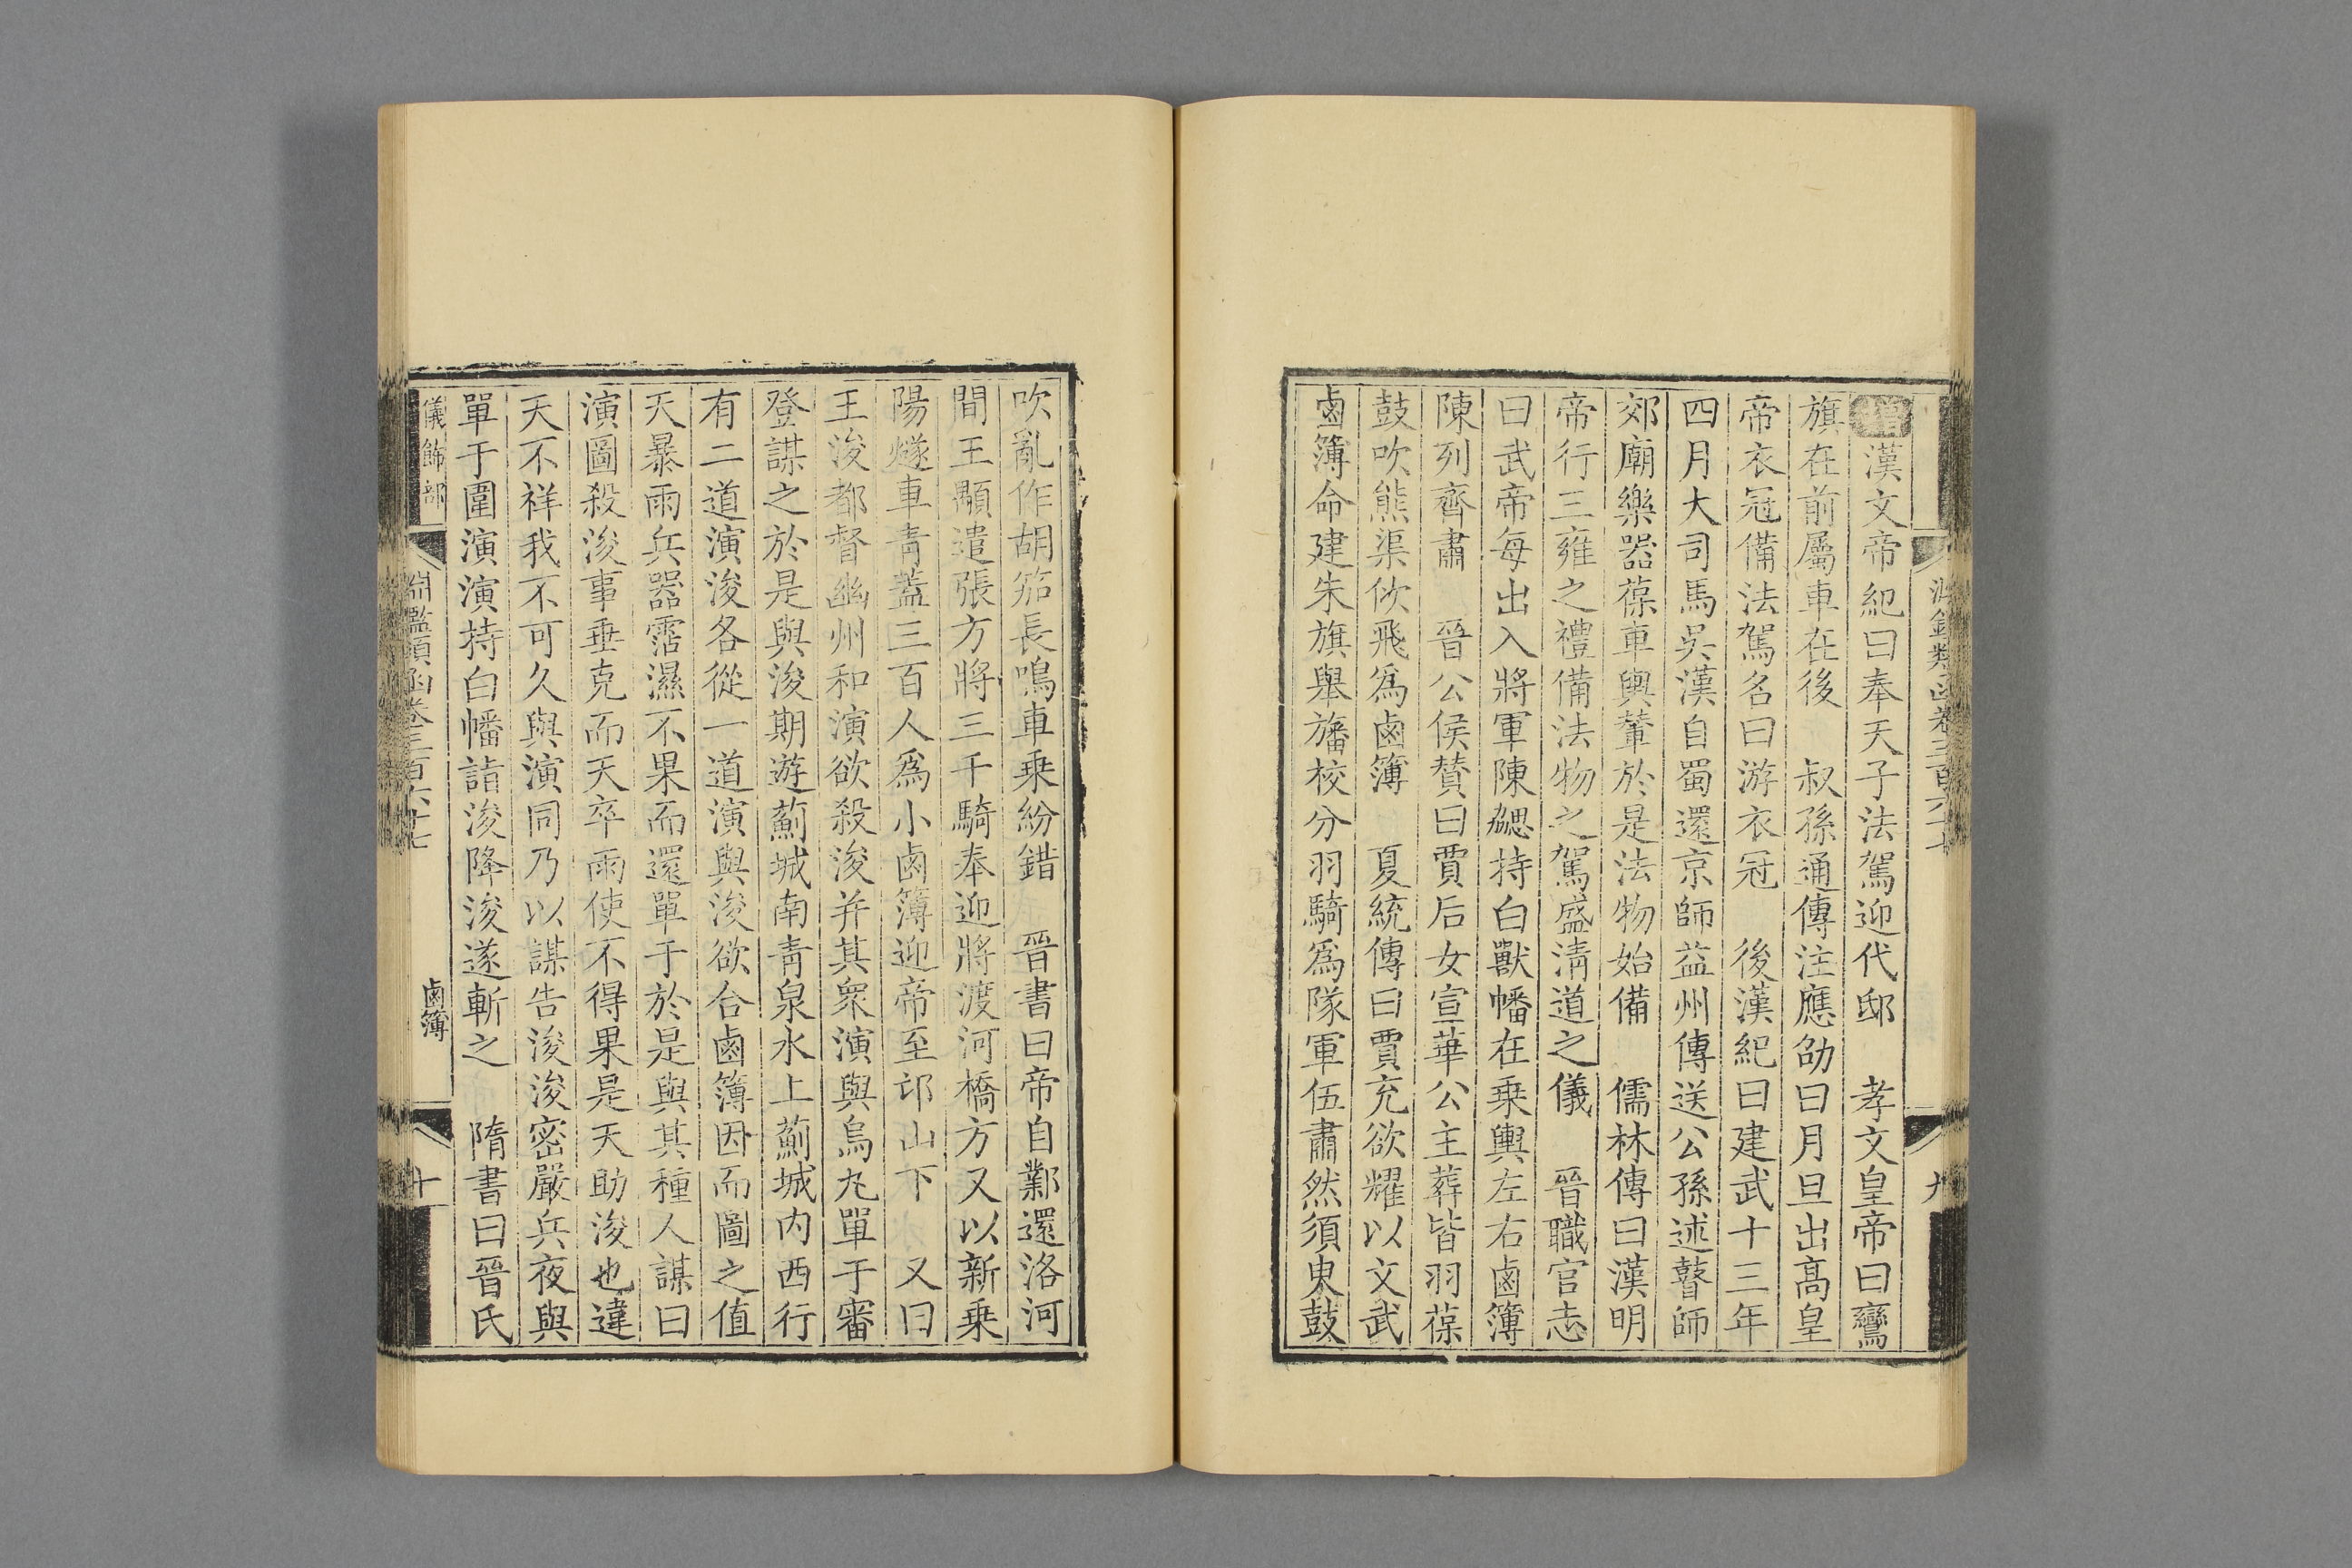 增漢文帝紀曰奉天子法駕迎代邸　孝文皇帝曰鸞
旗在前屬車在後　叔孫通傳注應劭曰月旦出高皇
帝衣冠備法駕名曰游衣冠　後漢紀曰建武十三年
四月大司馬吳漢自蜀還京師益州傳送公孫述瞽師
郊廟樂器葆車輿輦於是法物始備　儒林傳曰漢明
帝行三雍之禮備法物之駕盛淸道之儀　晉職官志
曰武帝每出入將軍陳勰持白獸幡在乗輿左右鹵簿
陳列齊肅　晉公侯贊曰賈后女宣華公主葬皆羽葆
鼓吹熊渠佽飛爲鹵簿　夏統傳曰賈充欲耀以文武
鹵簿命建朱旗舉旛校分羽騎爲隊軍伍肅然須臾鼓
吹亂作胡笳長鳴車乗紛錯　晉書曰帝自鄴還洛河
間王顒遣張方將三千騎奉迎將渡河橋方又以新乗
陽燧車青蓋三百人爲小鹵簿迎帝至邙山下　又曰
王浚都督幽州和演欲殺浚并其衆演與烏丸單于審
登謀之於是與浚期遊薊城南青泉水上薊城内西行
有二道演浚各從一道演與浚欲合鹵簿因而圖之值
天暴雨兵器霑濕不果而還單于於是與其種人謀曰
演圖殺浚事垂克而天卒雨使不得果是天助浚也違
天不祥我不可久與演同乃以謀告浚浚密嚴兵夜與
單于圍演演持白幡詣浚降浚遂斬之　隋書曰晉氏
儀飾部
淵鑑類函卷三百六十七
鹵簿
十